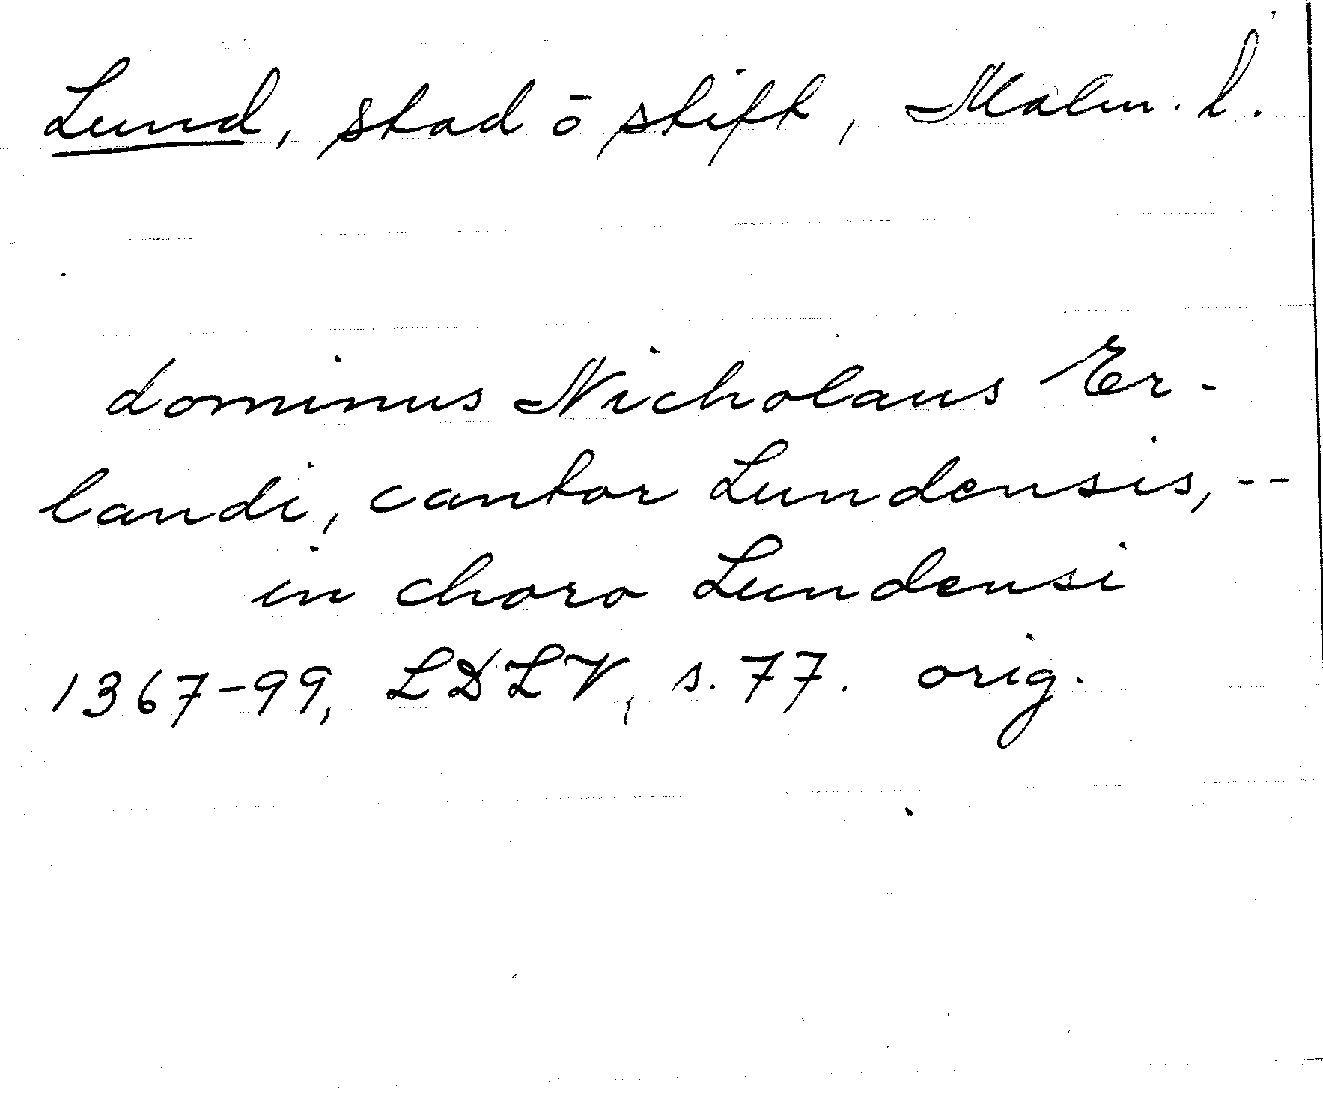 Lund, stad ō stift, Malm. l.
dominus Nicholaus Er-
landi, cantor Lundensis, --
in choro Lundensi
1367-99, LDLV, s. 77. orig.